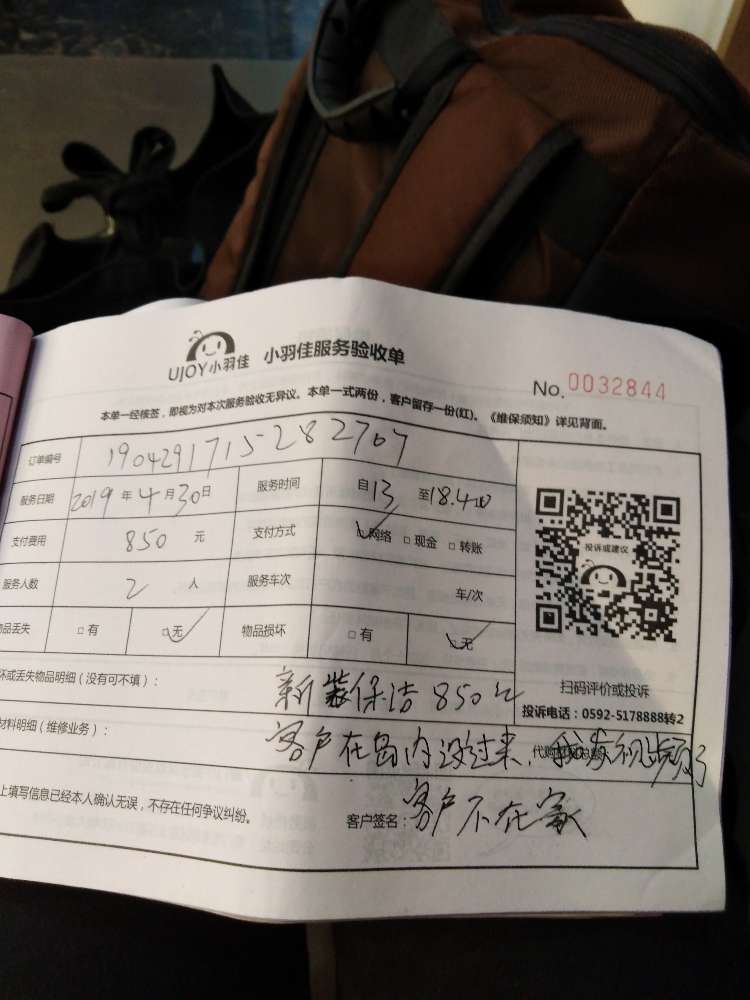 UJOY小羽佳 小羽佳服务验收单
No. 0032844
本单一经核签，即视为对本次服务验收无异议。本单一式两份，客户留存一份(红)。《维保须知》详见背面。
订单编号 1904291715282707
服务日期 2019年4月30日 服务时间 自13至18.40
支付费用 850 元 支付方式 网络 现金 转账
服务人数 2 人 服务车次 车/次
品丢失 有 无 物品损坏 有 无
投诉或建议
扫码评价或投诉
投诉电话：0592-5178888转2
坏或丢失物品明细（没有可不填）： 新装保洁 850元
材料明细（维修业务）： 客户在岛内没过来，我发视频了
代购
上填写信息已经本人确认无误，不存在任何争议纠纷。 客户签名：客户不在家